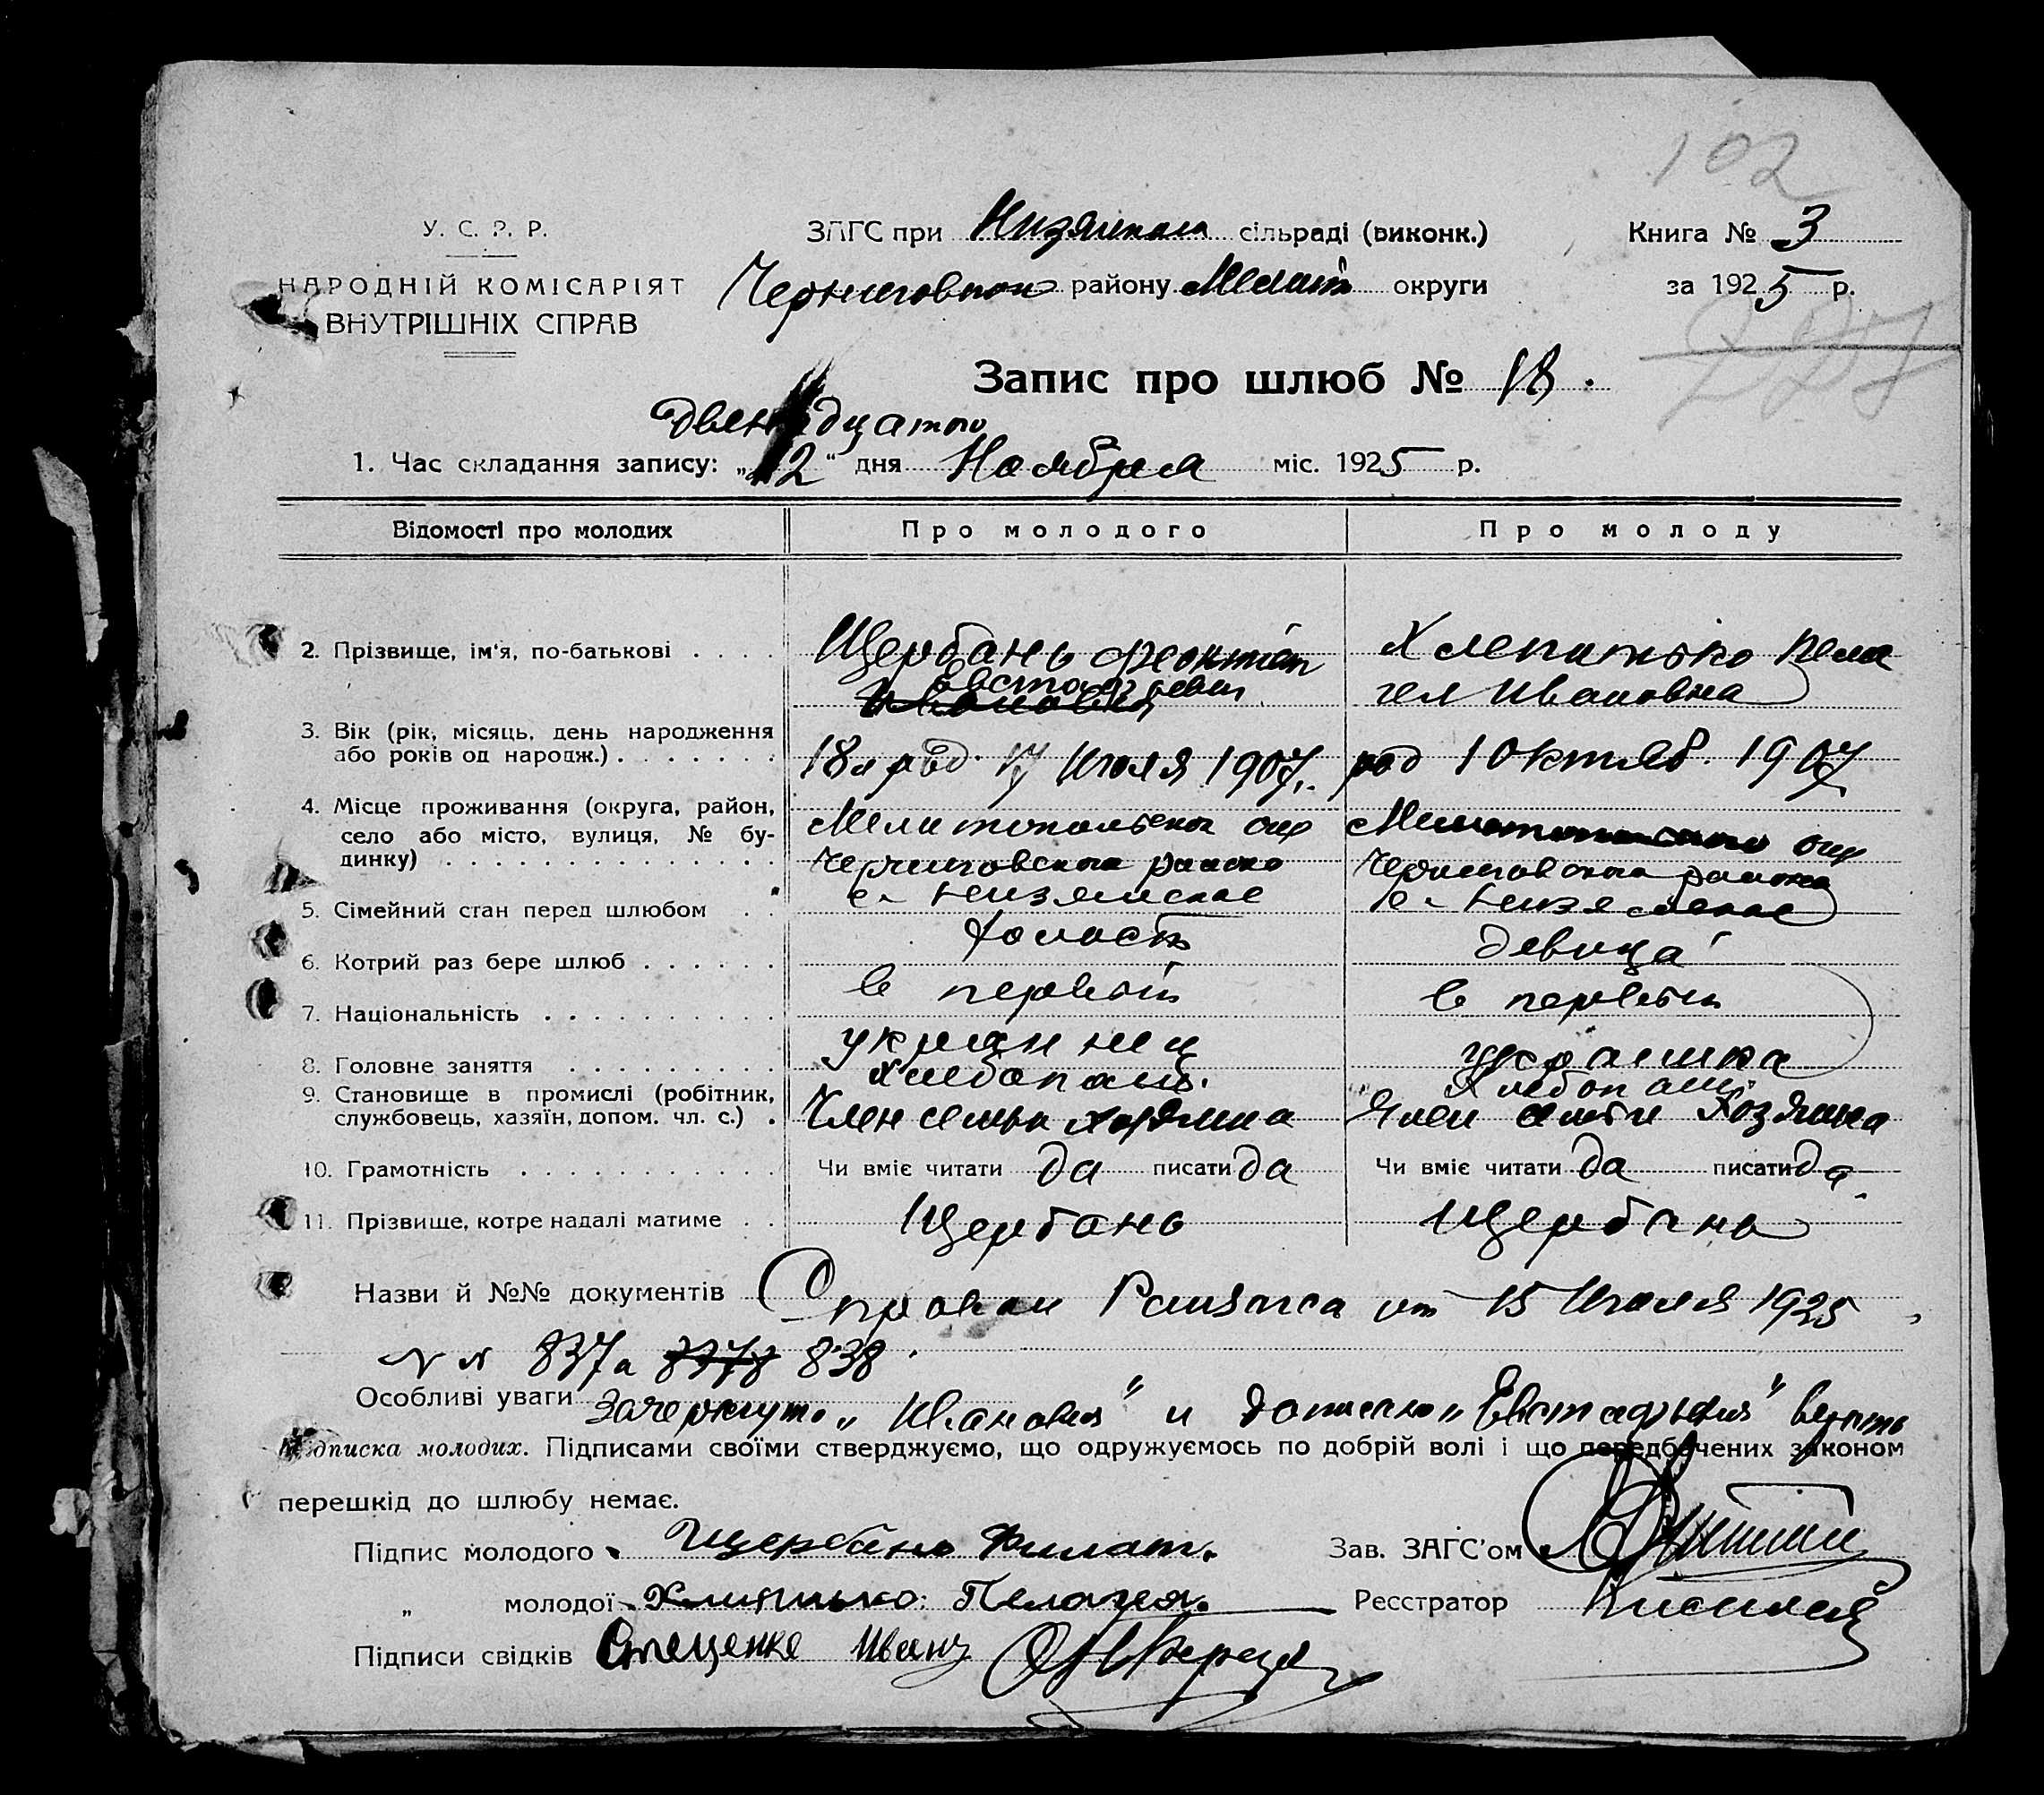 102
У. С. Р. Р.
НАРОДНІЙ КОМІСАРІЯТ
ВНУТРІШНІХ СПРАВ
ЗАГС при сільраді (виконк.)
району Мелит округи
Книга № 3
за 1925 р.
227
Запис про шлюб № 18.
Двенадцатого
1. Час складання запису: „12“ дня Ноября міс. 1925 р.
Відомості про молодих Про молодого Про молоду
2. Прізвище, ім'я, по-батькові . . . . Щербань Хлепитько Пела
гея Ивановна
3. Вік (рік, місяць, день народження
або років од народж.) . . . . . . . 18 л род. 17 Июля 1907 г. род 1 Октяб. 1907
4. Місце проживання (округа, район,
село або місто, вулиця, № бу-
динку) . . . . . . . . . . . . . . Мелитопольской окр Мелитопольского окр
Черниговского района Черниговского района
5. Сімейний стан перед шлюбом . . холост девица
6. Котрий раз бере шлюб . . . . . . в первый в первый
7. Національність . . . . . . . . . . украинец украинка
8. Головне заняття . . . . . . . . . хлебопаш. Хлебопаш.
9. Становище в промислі (робітник,
службовець, хазяїн, допом. чл. с.) . Член семьи хозяина Член семьи Хозяина
10. Грамотність . . . . . . . . . . . Чи вміє читати да писати да Чи вміє читати да писати да
11. Прізвище, котре надалі матиме . . Щербань Щербань
Назви й №№ документів Справки от 15 Июля 1925
№ № 837 и 838
Особливі уваги Зачеркнуто „Иванович" и дописано „Евстафьевич" верить
Підписка молодих. Підписами своїми стверджуємо, що одружуємось по добрій волі і що передбачених законом
перешкід до шлюбу немає.
Підпис молодого Щербань Филат. Зав. ЗАГС'ом
„ молодої Пелагея. Реєстратор
Підписи свідків Стеценко Иван